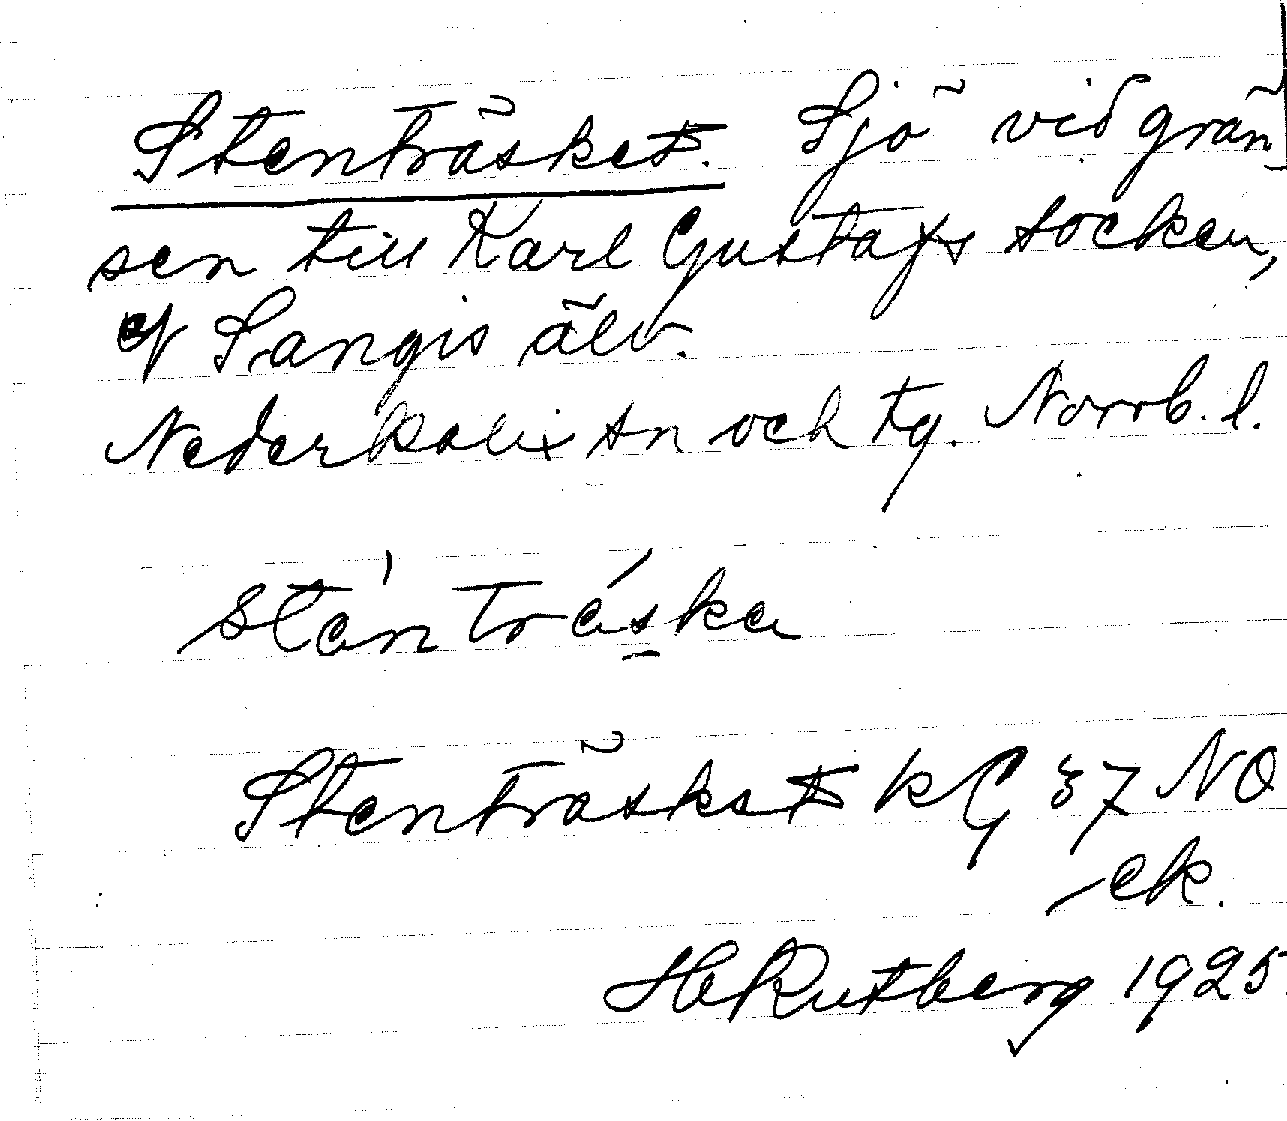 Stenträsket. Sjö vid grän
sen till Karl Gustafs socken,
Sangis älv.
Nederkalix sn och tg. Norrb. l.
Stenträsket KG 37 NO
ek.
H Rutberg 1925